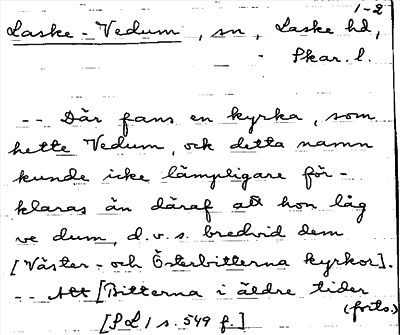 1-2
Laske-Vedum, sn, Laske hd,
Skar. l.
-- Där fans en kyrka, som
hette Vedum, ock detta namn
kunde icke lämpligare för-
klaras än däraf att hon låg
ve dum, d.v.s. bredvid dem
[Väster- och Österbitterna kyrkor].
-- Att [Bitterna i äldre tider
(forts.)
[SL 1 s. 549 f.]